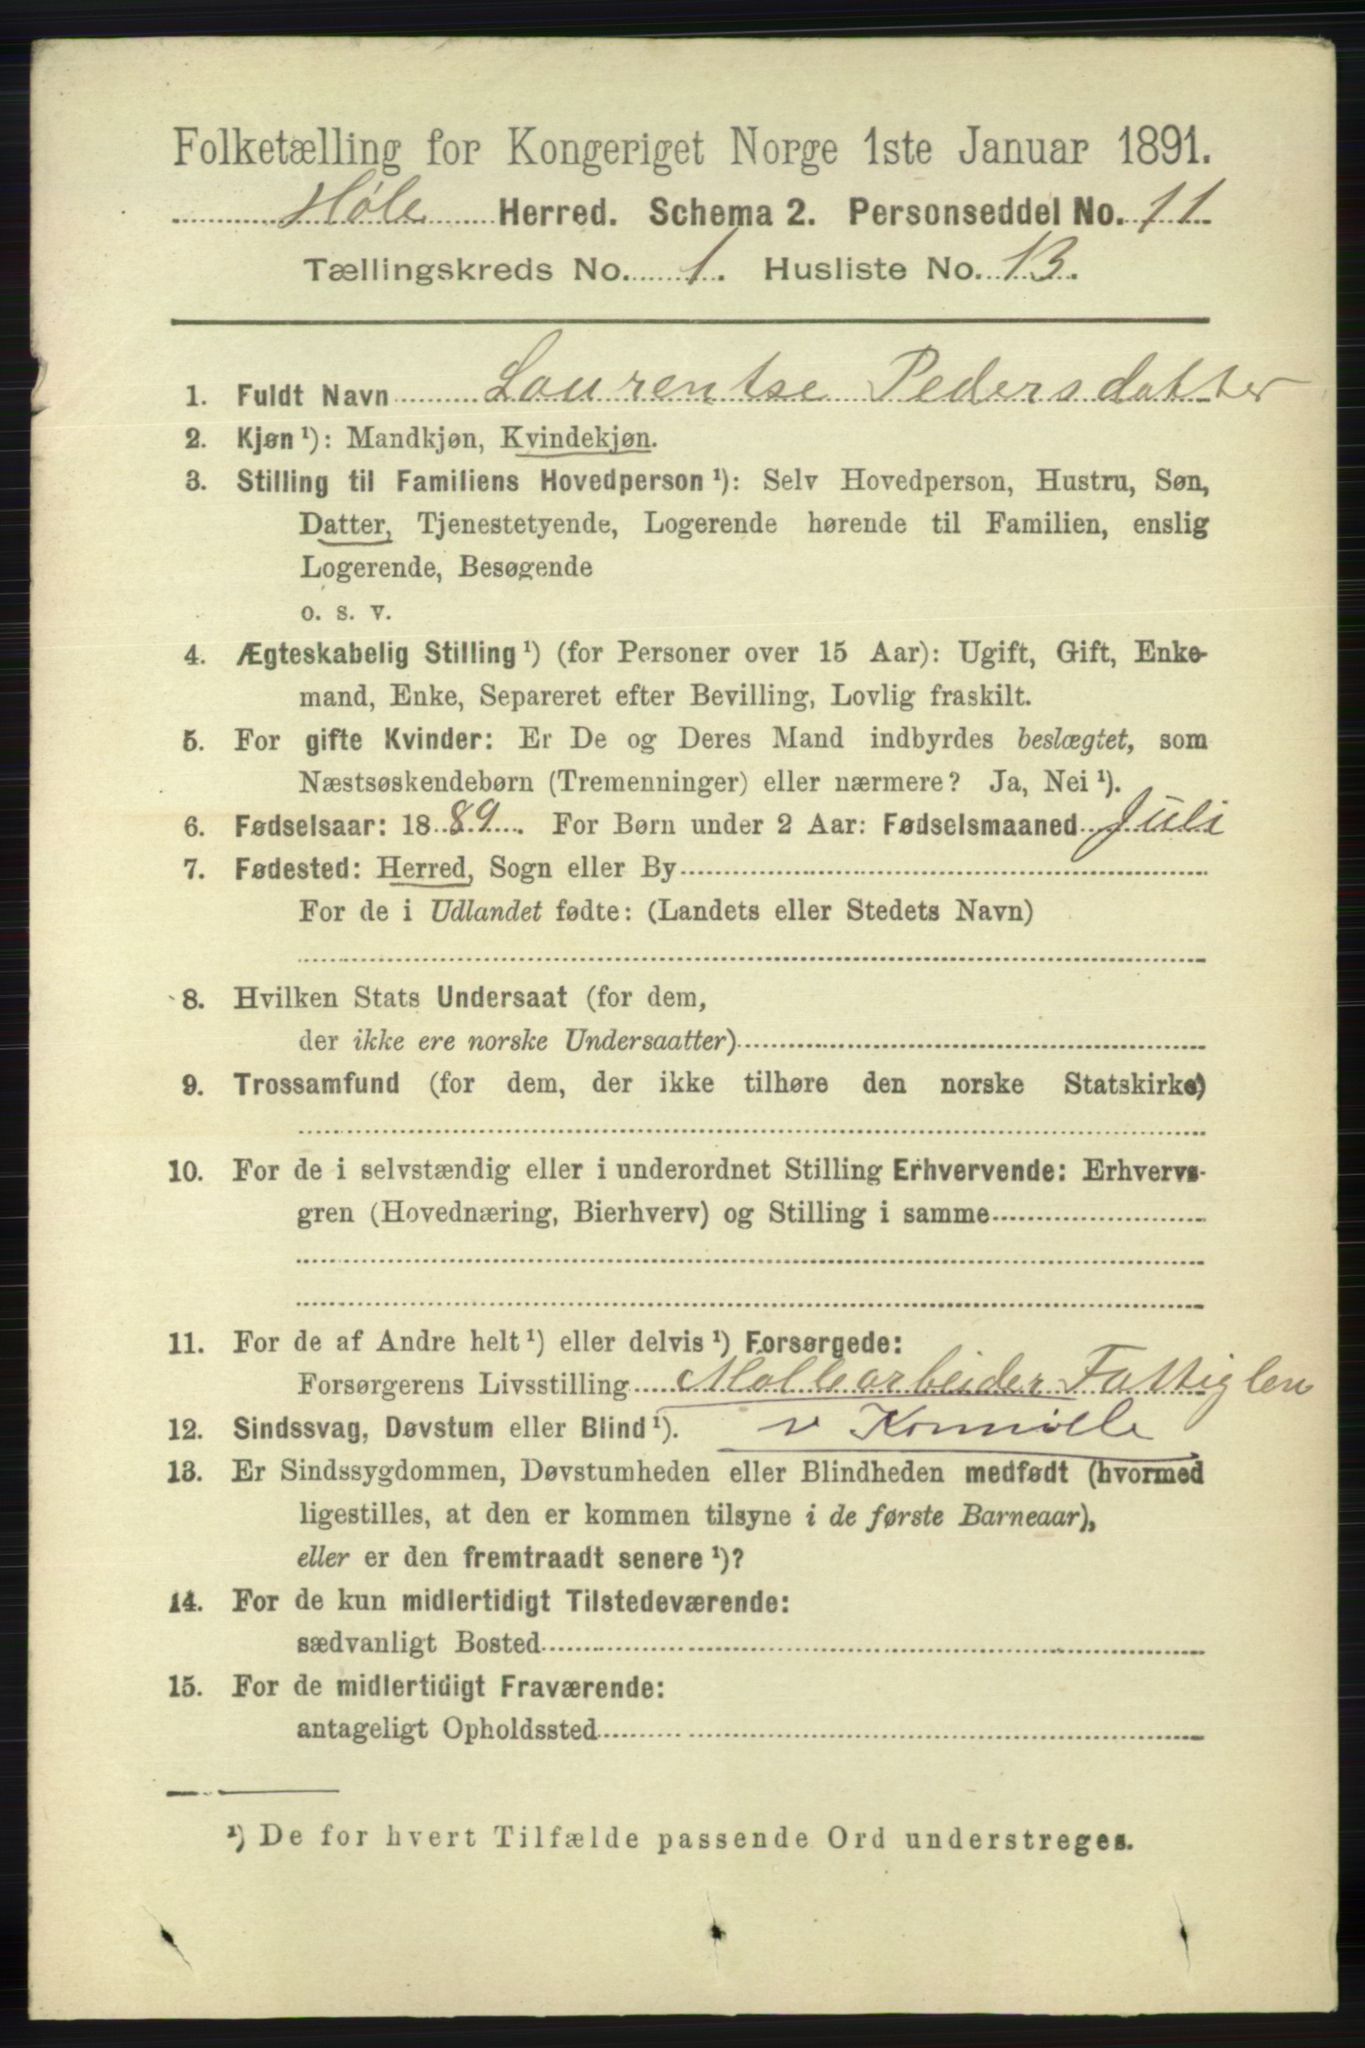 Folketælling for Kongeriget Norge 1ste Januar 1891.
Høle Herred. Schema 2. Personseddel No. 11
Tællingskreds No. 1. Husliste No. 13.
1. Fuldt Navn Laurentse Pedersdatter
2. Kjøn ¹): Mandkjøn, Kvindekjøn.
3. Stilling til Familiens Hovedperson ¹): Selv Hovedperson, Hustru, Søn,
Datter, Tjenestetyende, Logerende hørende til Familien, enslig
Logerende, Besøgende
o. s. v.
4. Ægteskabelig Stilling ¹) (for Personer over 15 Aar): Ugift, Gift, Enke-
mand, Enke, Separeret efter Bevilling, Lovlig fraskilt.
5. For gifte Kvinder: Er De og Deres Mand indbyrdes beslægtet, som
Næstsøskendebørn (Tremenninger) eller nærmere? Ja, Nei ¹).
6. Fødselsaar: 1889. For Børn under 2 Aar: Fødselsmaaned Juli
7. Fødested: Herred, Sogn eller By
For de i Udlandet fødte: (Landets eller Stedets Navn)
8. Hvilken Stats Undersaat (for dem,
der ikke ere norske Undersaatter)
9. Trossamfund (for dem, der ikke tilhøre den norske Statskirke)
10. For de i selvstændig eller i underordnet Stilling Erhvervende: Erhvervs-
gren (Hovednæring, Bierhverv) og Stilling i samme
11. For de af Andre helt ¹) eller delvis ¹) Forsørgede:
Forsørgerens Livsstilling Møllearbeider Fattiglem
12. Sindssvag, Døvstum eller Blind ¹). v Kornmølle
13. Er Sindssygdommen, Døvstumheden eller Blindheden medfødt (hvormed
ligestilles, at den er kommen tilsyne i de første Barneaar),
eller er den fremtraadt senere ¹)?
14. For de kun midlertidigt Tilstedeværende:
sædvanligt Bosted
15. For de midlertidigt Fraværende:
antageligt Opholdssted
¹) De for hvert Tilfælde passende Ord understreges.